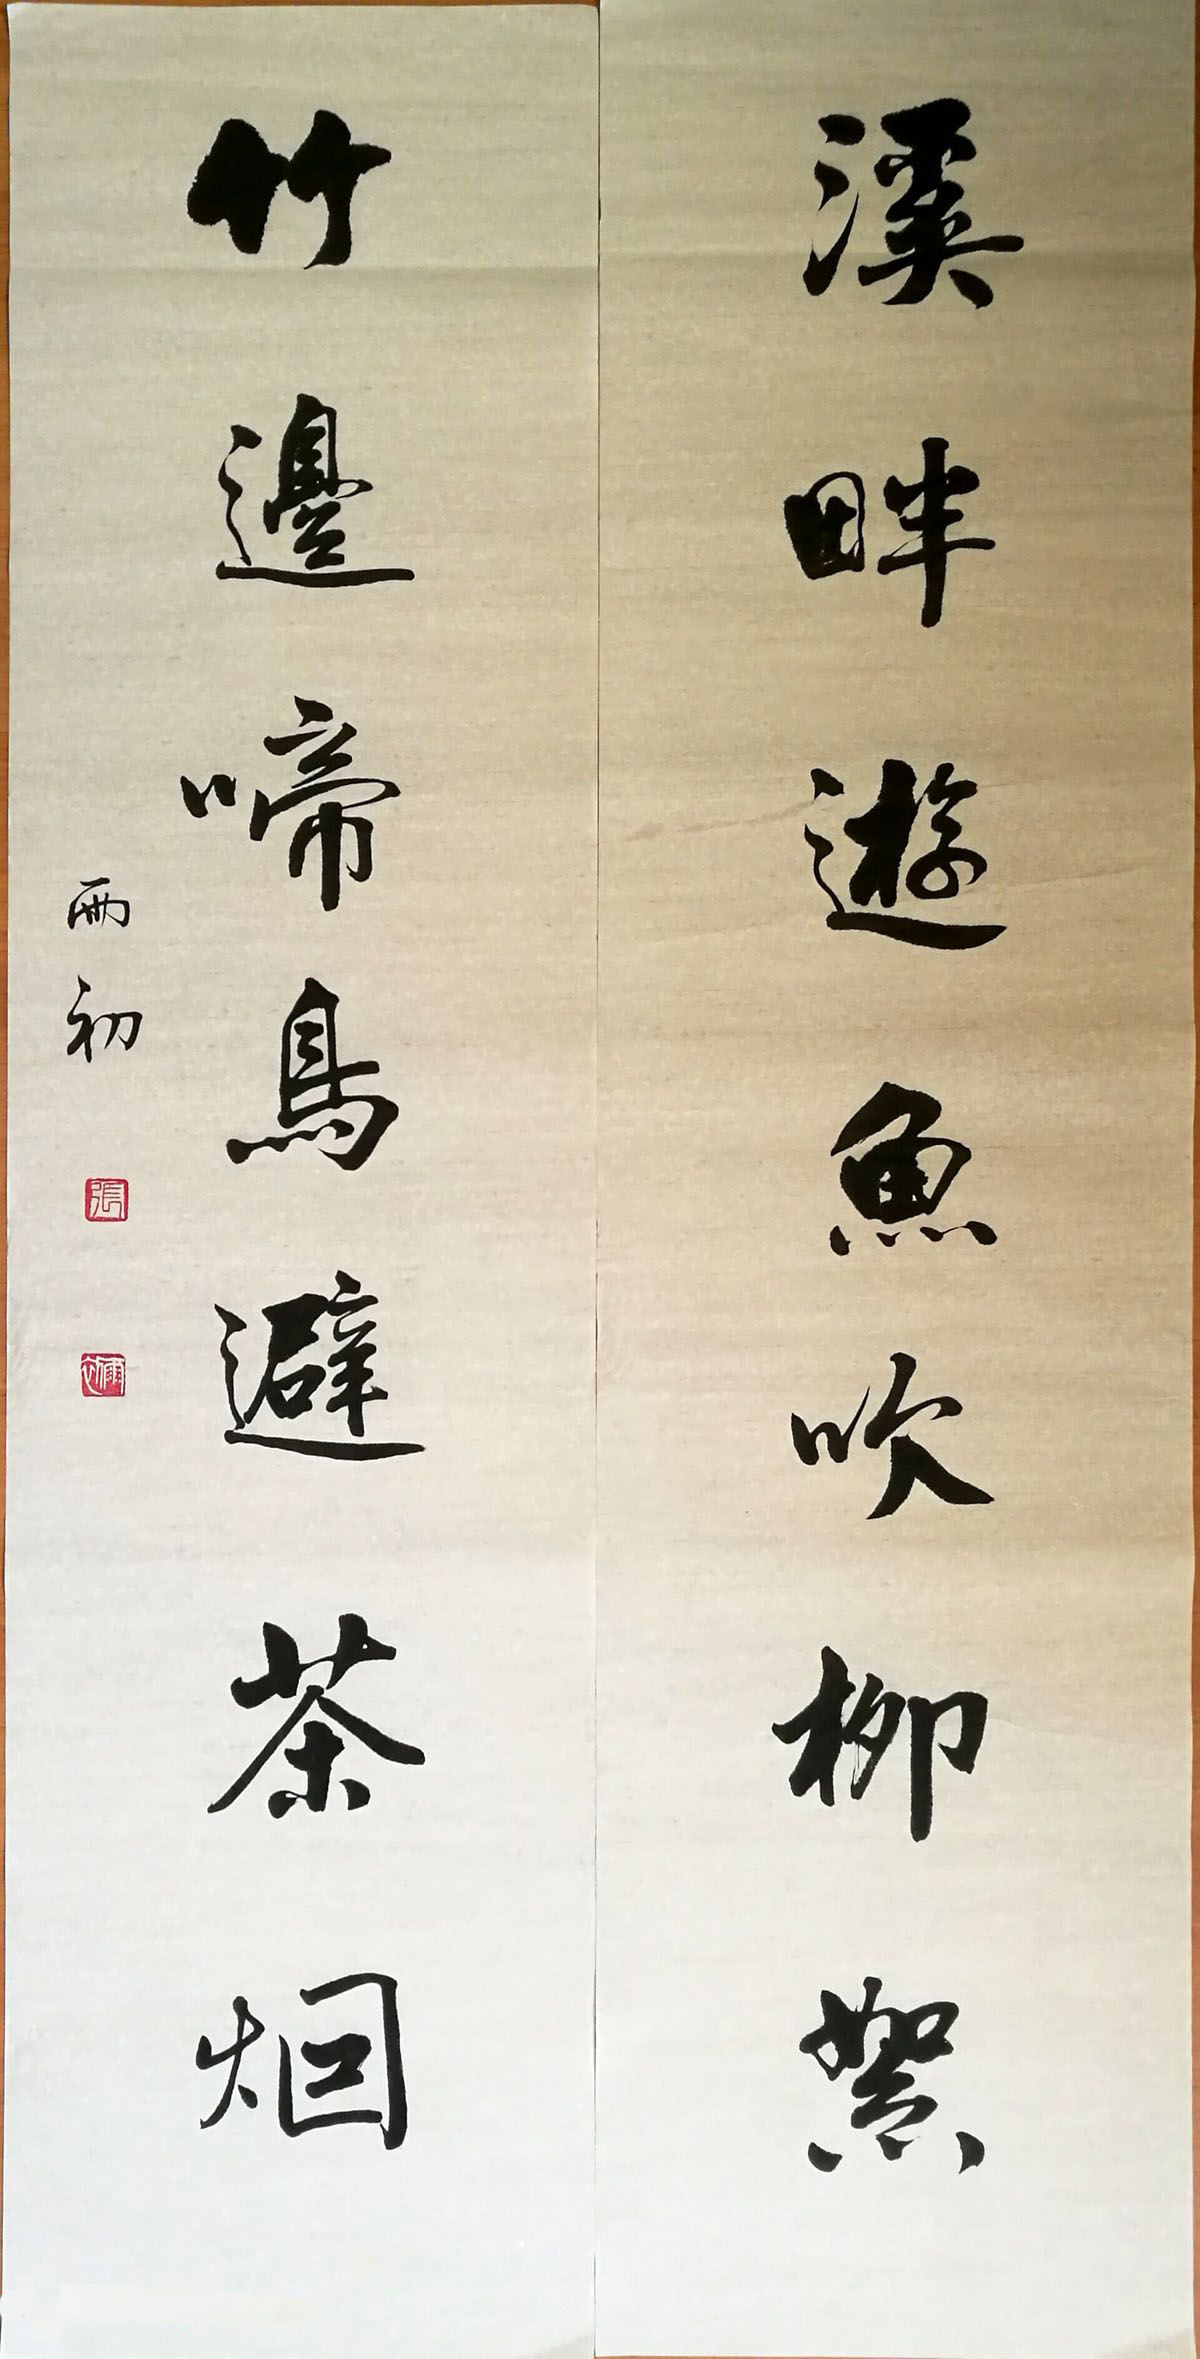 溪畔遊魚吹柳絮
竹邊啼鳥避茶烟
雨初
張
雨初